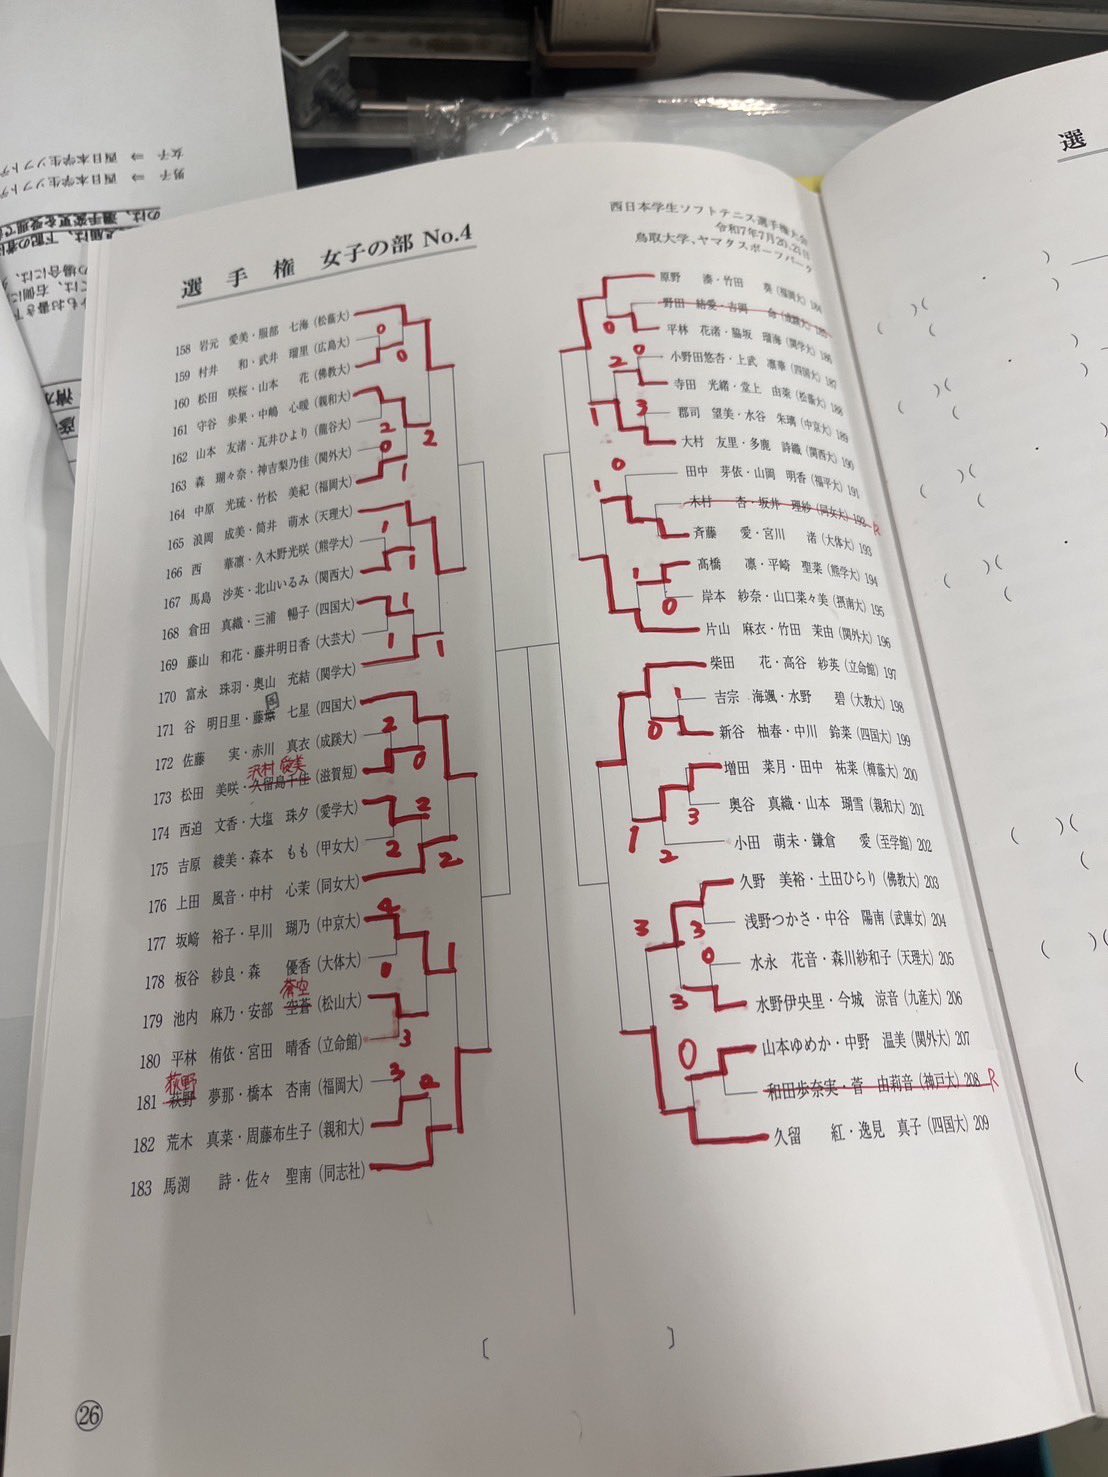 選手権 女子の部 No.4
西日本学生ソフトテニス選手権大会
令和7年7月20、21日
鳥取大学、ヤマタスポーツパーク
158 岩元 愛美・服部 七海 (松蔭大)
159 村井 和・武井 瑠里 (広島大)
160 松田 咲桜・山本 花 (佛教大)
161 守谷 歩果・中嶋 心暖 (親和大)
162 山本 友渚・瓦井ひより (龍谷大)
163 森 瑚々奈・神吉梨乃佳 (関外大)
164 中原 光琉・竹松 美紀 (福岡大)
165 浪岡 成美・筒井 萌水 (天理大)
166 西 華凛・久木野光咲 (熊学大)
167 馬島 沙英・北山いるみ (関西大)
168 倉田 真織・三浦 暢子 (四国大)
169 藤山 和花・藤井明日香 (大芸大)
170 富永 珠羽・奥山 充結 (関学大)
171 谷 明日里・藤 七星 (四国大)
172 佐藤 実・赤川 真衣 (成蹊大)
沢村 愛美
173 松田 美咲・久留島千佳 (滋賀短)
174 西迫 文香・大塩 珠夕 (愛学大)
175 吉原 綾美・森本 もも (甲女大)
176 上田 風音・中村 心茉 (同女大)
177 坂﨑 裕子・早川 瑚乃 (中京大)
178 板谷 紗良・森 優香 (大体大)
蒼空
179 池内 麻乃・安部 空蒼 (松山大)
180 平林 侑依・宮田 晴香 (立命館)
荻野
181 萩野 夢那・橋本 杏南 (福岡大)
182 荒木 真菜・周藤布生子 (親和大)
183 馬渕 詩・佐々 聖南 (同志社)
原野 湊・竹田 葵 (福岡大) 184
野田 結愛・吉岡 命 (成蹊大) 185
平林 花渚・脇坂 瑠海 (関学大) 186
小野田悠杏・上武 凛華 (四国大) 187
寺田 光緒・堂上 由菜 (松蔭大) 188
郡司 望美・水谷 朱璃 (中京大) 189
大村 友里・多鹿 詩織 (関西大) 190
田中 芽依・山岡 明香 (福平大) 191
木村 杏・坂井 理紗 (同女大) 192 R
斉藤 愛・宮川 渚 (大体大) 193
髙橋 凛・平崎 聖菜 (熊学大) 194
岸本 紗奈・山口菜々美 (摂南大) 195
片山 麻衣・竹田 茉由 (関外大) 196
柴田 花・高谷 紗英 (立命館) 197
吉宗 海颯・水野 碧 (大教大) 198
新谷 柚春・中川 鈴菜 (四国大) 199
増田 菜月・田中 祐菜 (樟蔭大) 200
奥谷 真織・山本 瑚雪 (親和大) 201
小田 萌未・鎌倉 愛 (至学館) 202
久野 美裕・土田ひらり (佛教大) 203
浅野つかさ・中谷 陽南 (武庫女) 204
水永 花音・森川紗和子 (天理大) 205
水野伊央里・今城 涼音 (九産大) 206
山本ゆめか・中野 温美 (関外大) 207
和田歩奈実・菅 由莉音 (神戸大) 208 R
久留 紅・逸見 真子 (四国大) 209
㉖
選
女子 ⇒ 西日本学生ソフトテ
男子 ⇒ 西日本学生ソフトテ